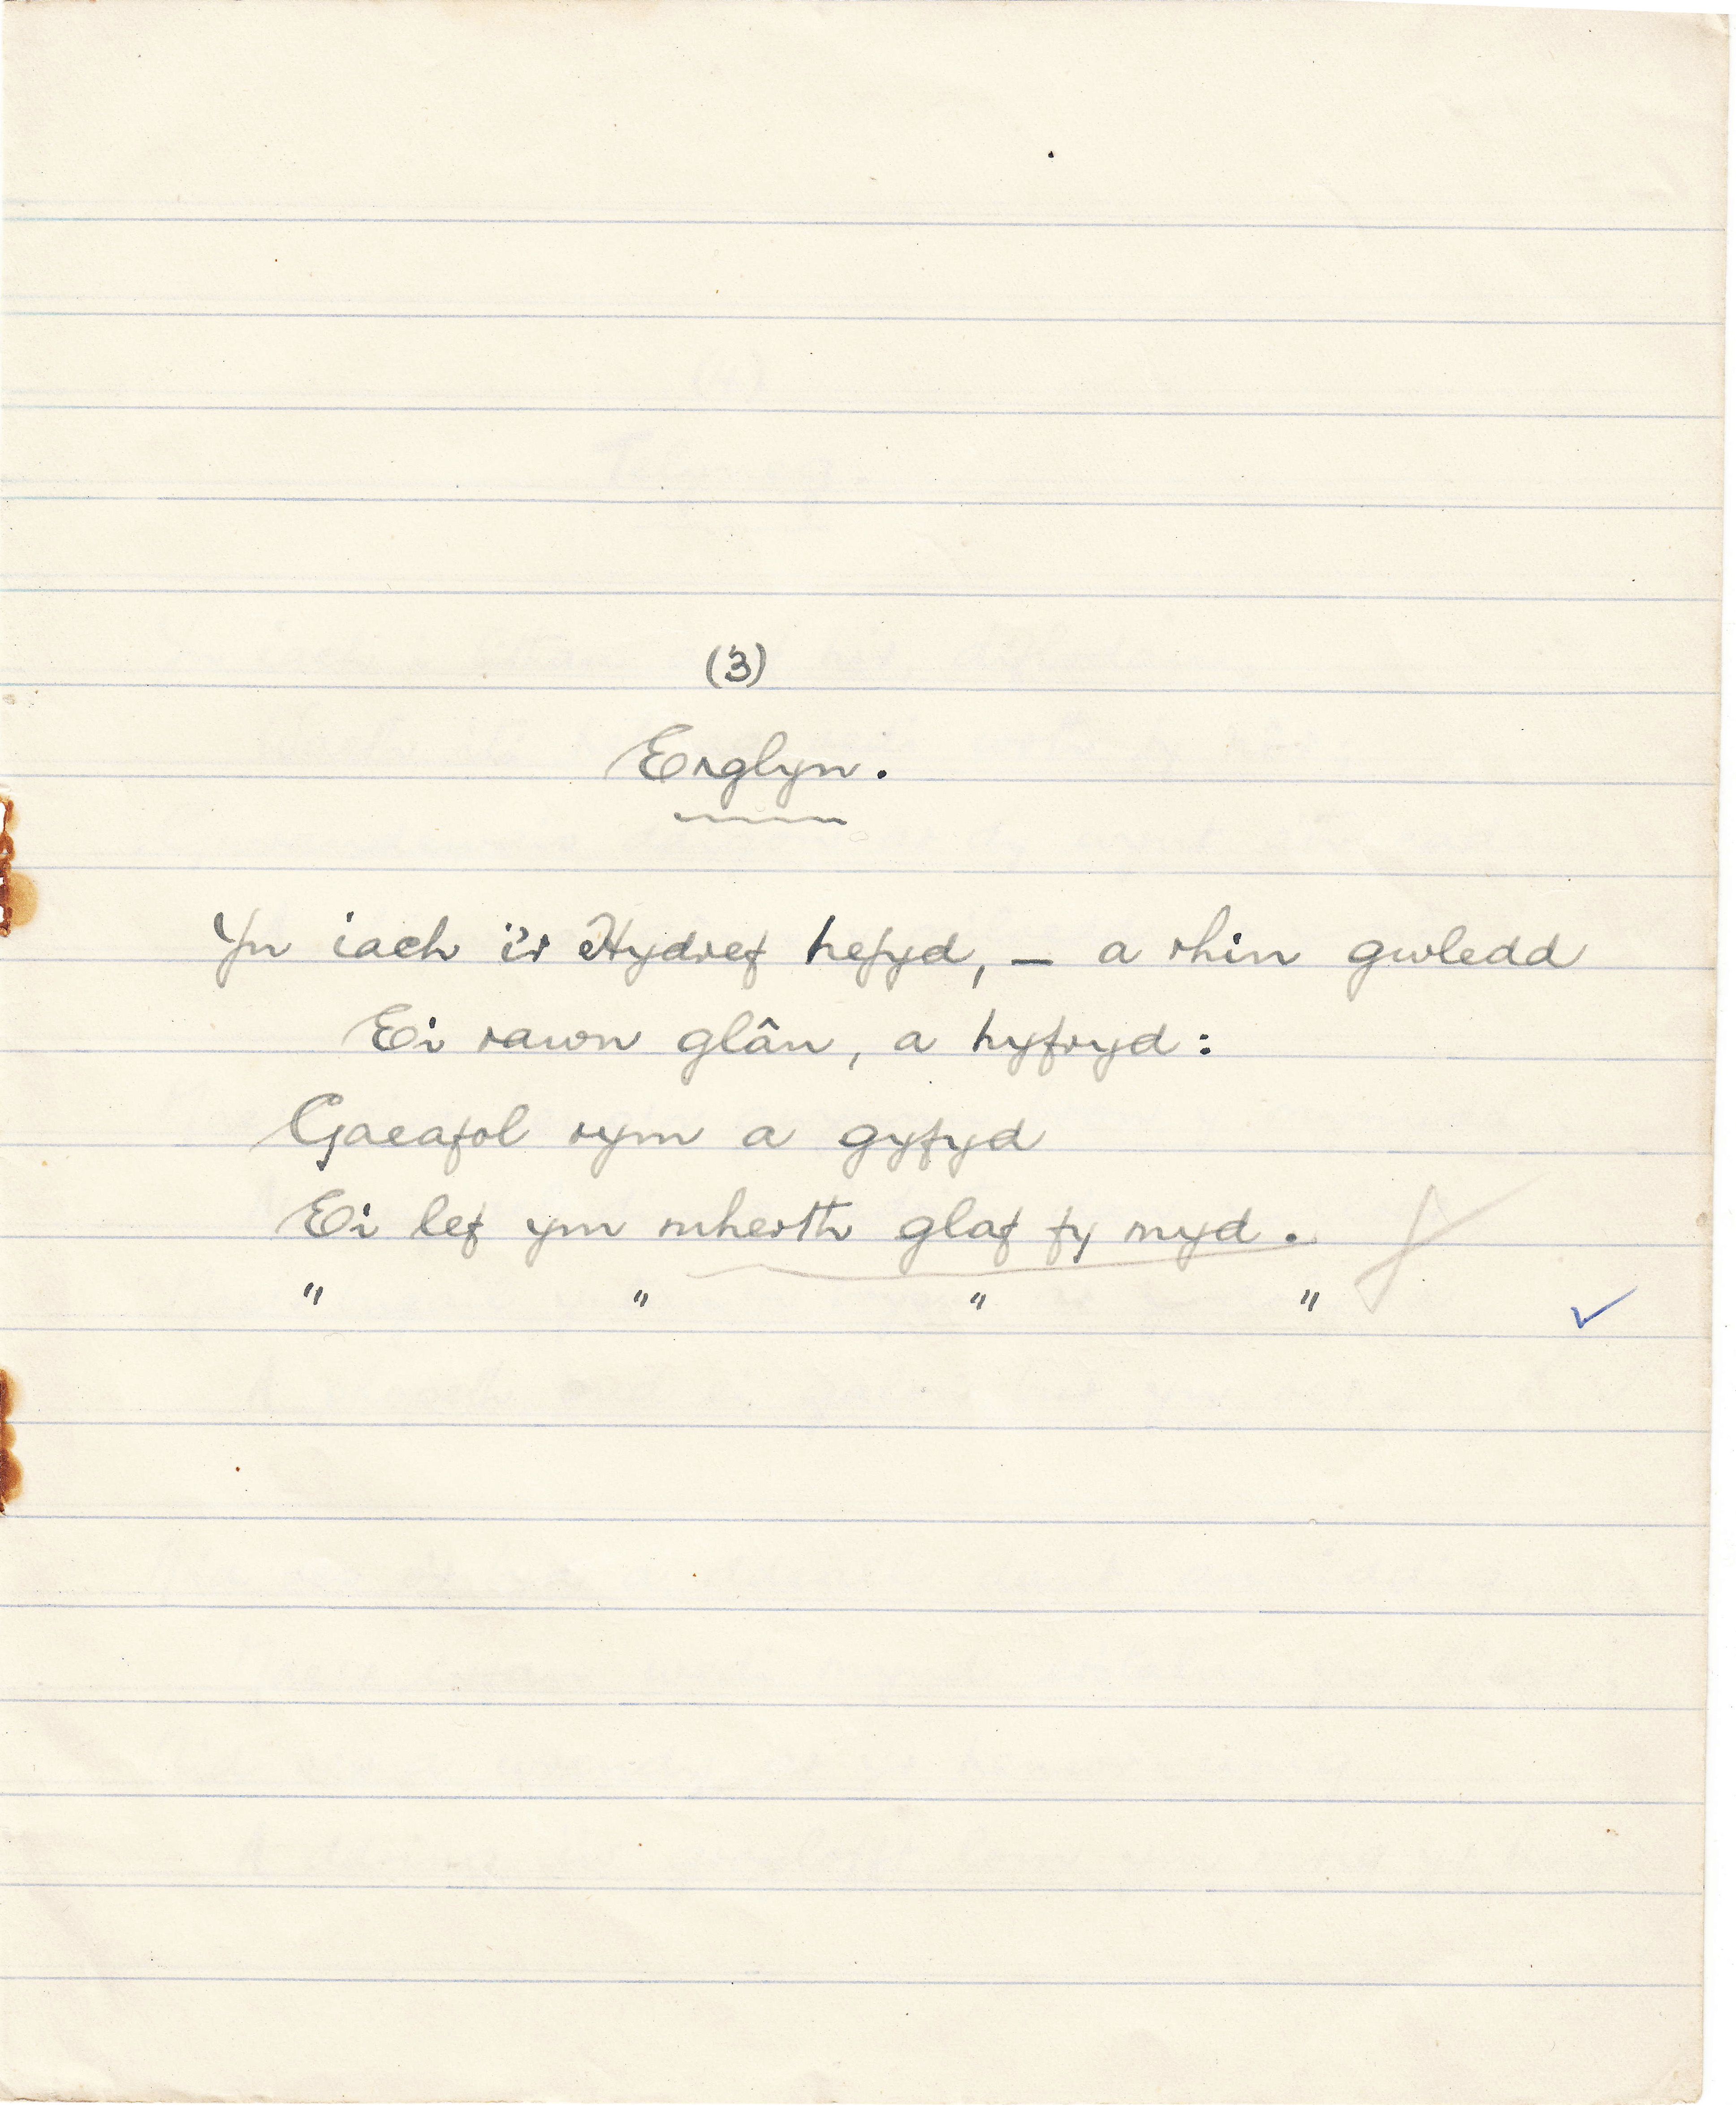 (3)
Englyn.
Yn iach i'r Hydref hefyd, – a rhin gwledd
Ei rawn glân, a hyfryd:
Gaeafol rym a gyfyd
Ei lef ym mherth glaf fy myd.
" " " "